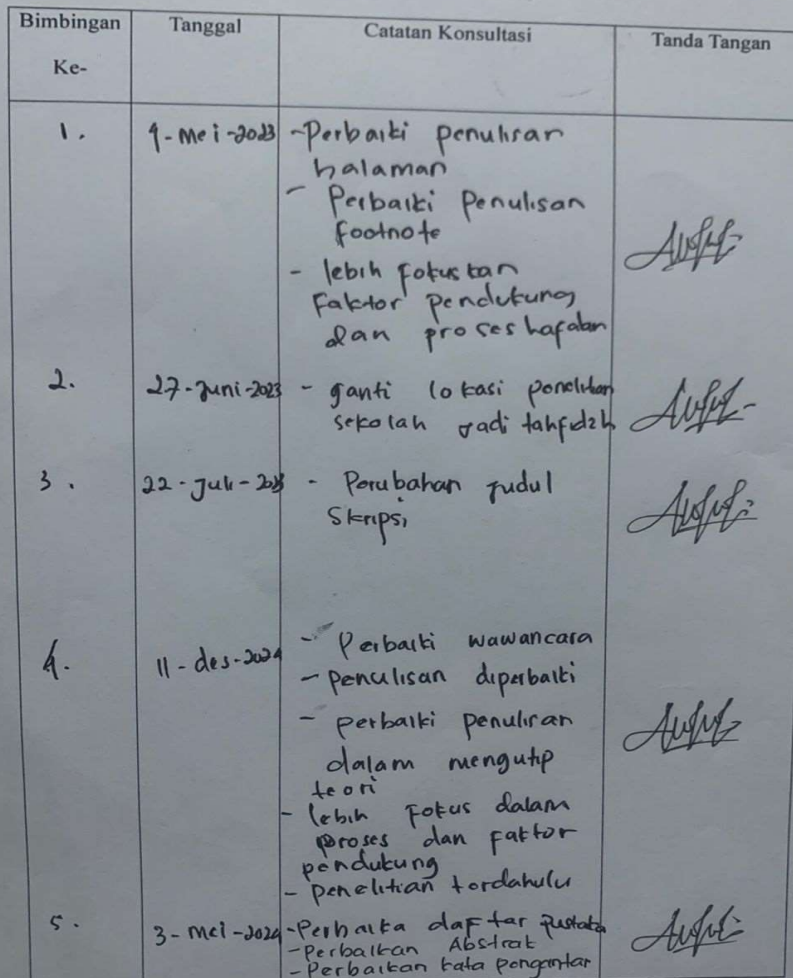 Bimbingan Ke-
Tanggal
Catatan Konsultasi
Tanda Tangan
1. 9-mei-2023 -Perbaiki penulisan
halaman
- Perbaiki Penulisan
footnote
- lebih fokuskan
Faktor pendukung
dan proses hafalan
2. 27-Juni-2023 - ganti lokasi penelitian
sekolah jadi tahfidzh
3. 22-Juli-2023 - Perubahan judul
Skripsi
4. 11-des-2024 - Perbaiki wawancara
- penulisan diperbaiki
- perbaiki penulisan
dalam mengutip
teori
- lebih Fokus dalam
proses dan faktor
pendukung
- penelitian terdahulu
5. 3-mei-2024 -Perbaika daftar pustaka
-Perbaikan Abstrak
-Perbaikan kata pengantar